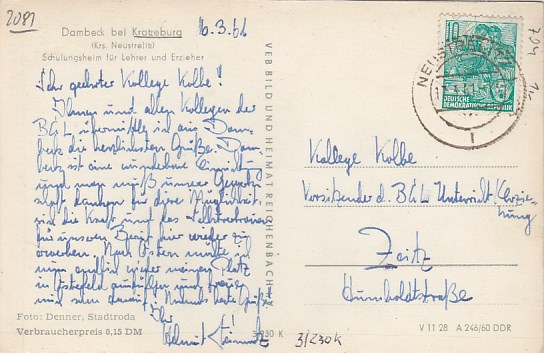 2089
Dambeck bei Kratzeburg
(Krs. Neustrelitz)
Schulungsheim für Lehrer und Erzieher
16.3.61
Sehr geehrter Kollege Kolbe!
Ihnen und allen Kollegen der
BGL übermittle ich aus Dam-
beck die herzlichsten Grüße. Dam-
beck ist eine wunderbare Einrichtung
und man muß unserer Gewerk-
schaft danken für diese Möglichkeit,
sich die Kraft und das Selbstvertrauen
für unseren Beruf hier wieder zu
erwerben. Nach Ostern möchte ich
nun endlich wieder meinen Platz
in
ausfüllen und freue
mich sehr darauf. Nochmals herzl. Grüße!
Ihr
Helmut
Foto: Denner, Stadtroda
Verbraucherpreis 0,15 DM
VEB BILD UND HEIMAT REICHENBACH i. V.
3/230 K
3/230K
10
DEUTSCHE
DEMOKRATISCHE REPUBLIK
NEUSTRELITZ
1
Kollege Kolbe
Vorsitzender d. BGL Unterricht/Erzie-
hung
Zeitz
Humboldtstraße
V 11 28 A 246/60 DDR